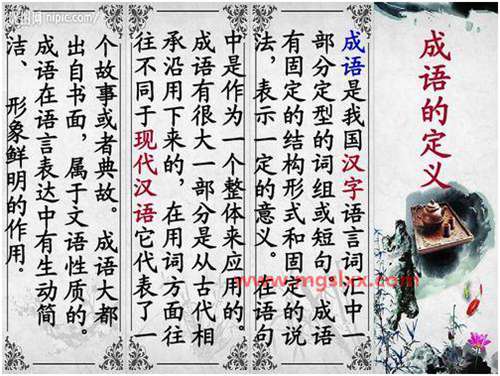 成语的定义
成语是我国汉字语言词汇中一
部分定型的词组或短句。成语
有固定的结构形式和固定的说
法，表示一定的意义。在语句
中是作为一个整体来应用的。
成语有很大一部分是从古代相
承沿用下来的，在用词方面往
往不同于现代汉语它代表了一
个故事或者典故。 成语大都
出自书面，属于文语性质的。
成语在语言表达中有生动简
洁、 形象鲜明的作用。
www.mgslxx.com